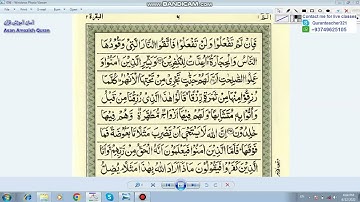 BANDICAM
Contact me for live classes
Quranteacher321
+93749625105
Asan Amozish Quran
فَاِنْ لَّمْ تَفْعَلُوْا وَلَنْ تَفْعَلُوْا فَاتَّقُوا النَّارَ الَّتِیْ وَقُوْدُهَا
النَّاسُ وَالْحِجَارَةُ اُعِدَّتْ لِلْكٰفِرِیْنَ وَبَشِّرِ الَّذِیْنَ اٰمَنُوْا وَ
عَمِلُوا الصّٰلِحٰتِ اَنَّ لَهُمْ جَنّٰتٍ تَجْرِیْ مِنْ تَحْتِهَا الْاَنْهٰرُ كُلَّمَا
رُزِقُوْا مِنْهَا مِنْ ثَمَرَةٍ رِّزْقًا قَالُوْا هٰذَا الَّذِیْ رُزِقْنَا مِنْ قَبْلُ
وَاُتُوْا بِهٖ مُتَشَابِهًا وَلَهُمْ فِیْهَا اَزْوَاجٌ مُّطَهَّرَةٌ وَّهُمْ فِیْهَا
خٰلِدُوْنَ اِنَّ اللّٰهَ لَا یَسْتَحْیٖ اَنْ یَّضْرِبَ مَثَلًا مَّا بَعُوْضَةً فَمَا
فَوْقَهَا فَاَمَّا الَّذِیْنَ اٰمَنُوْا فَیَعْلَمُوْنَ اَنَّهُ الْحَقُّ مِنْ رَّبِّهِمْ وَاَمَّا
الَّذِیْنَ كَفَرُوْا فَیَقُوْلُوْنَ مَاذَا اَرَادَ اللّٰهُ بِهٰذَا مَثَلًا یُضِلُّ